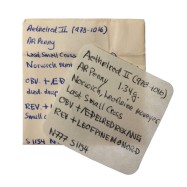 Aethelred II (978-1016)
AR Penny
Last Small Cross
Norwich Mint
OBV. +ÆÐ
REV. + L
Small C
S 1154
Aethelred II (978-1016)
AR Penny 1.34g
Norwich, Leofwine moneyer
Last Small Cross
OBV +ÆÐELREDREXANG
REV + LEOFPINE MO NORÐ
N777 S1154